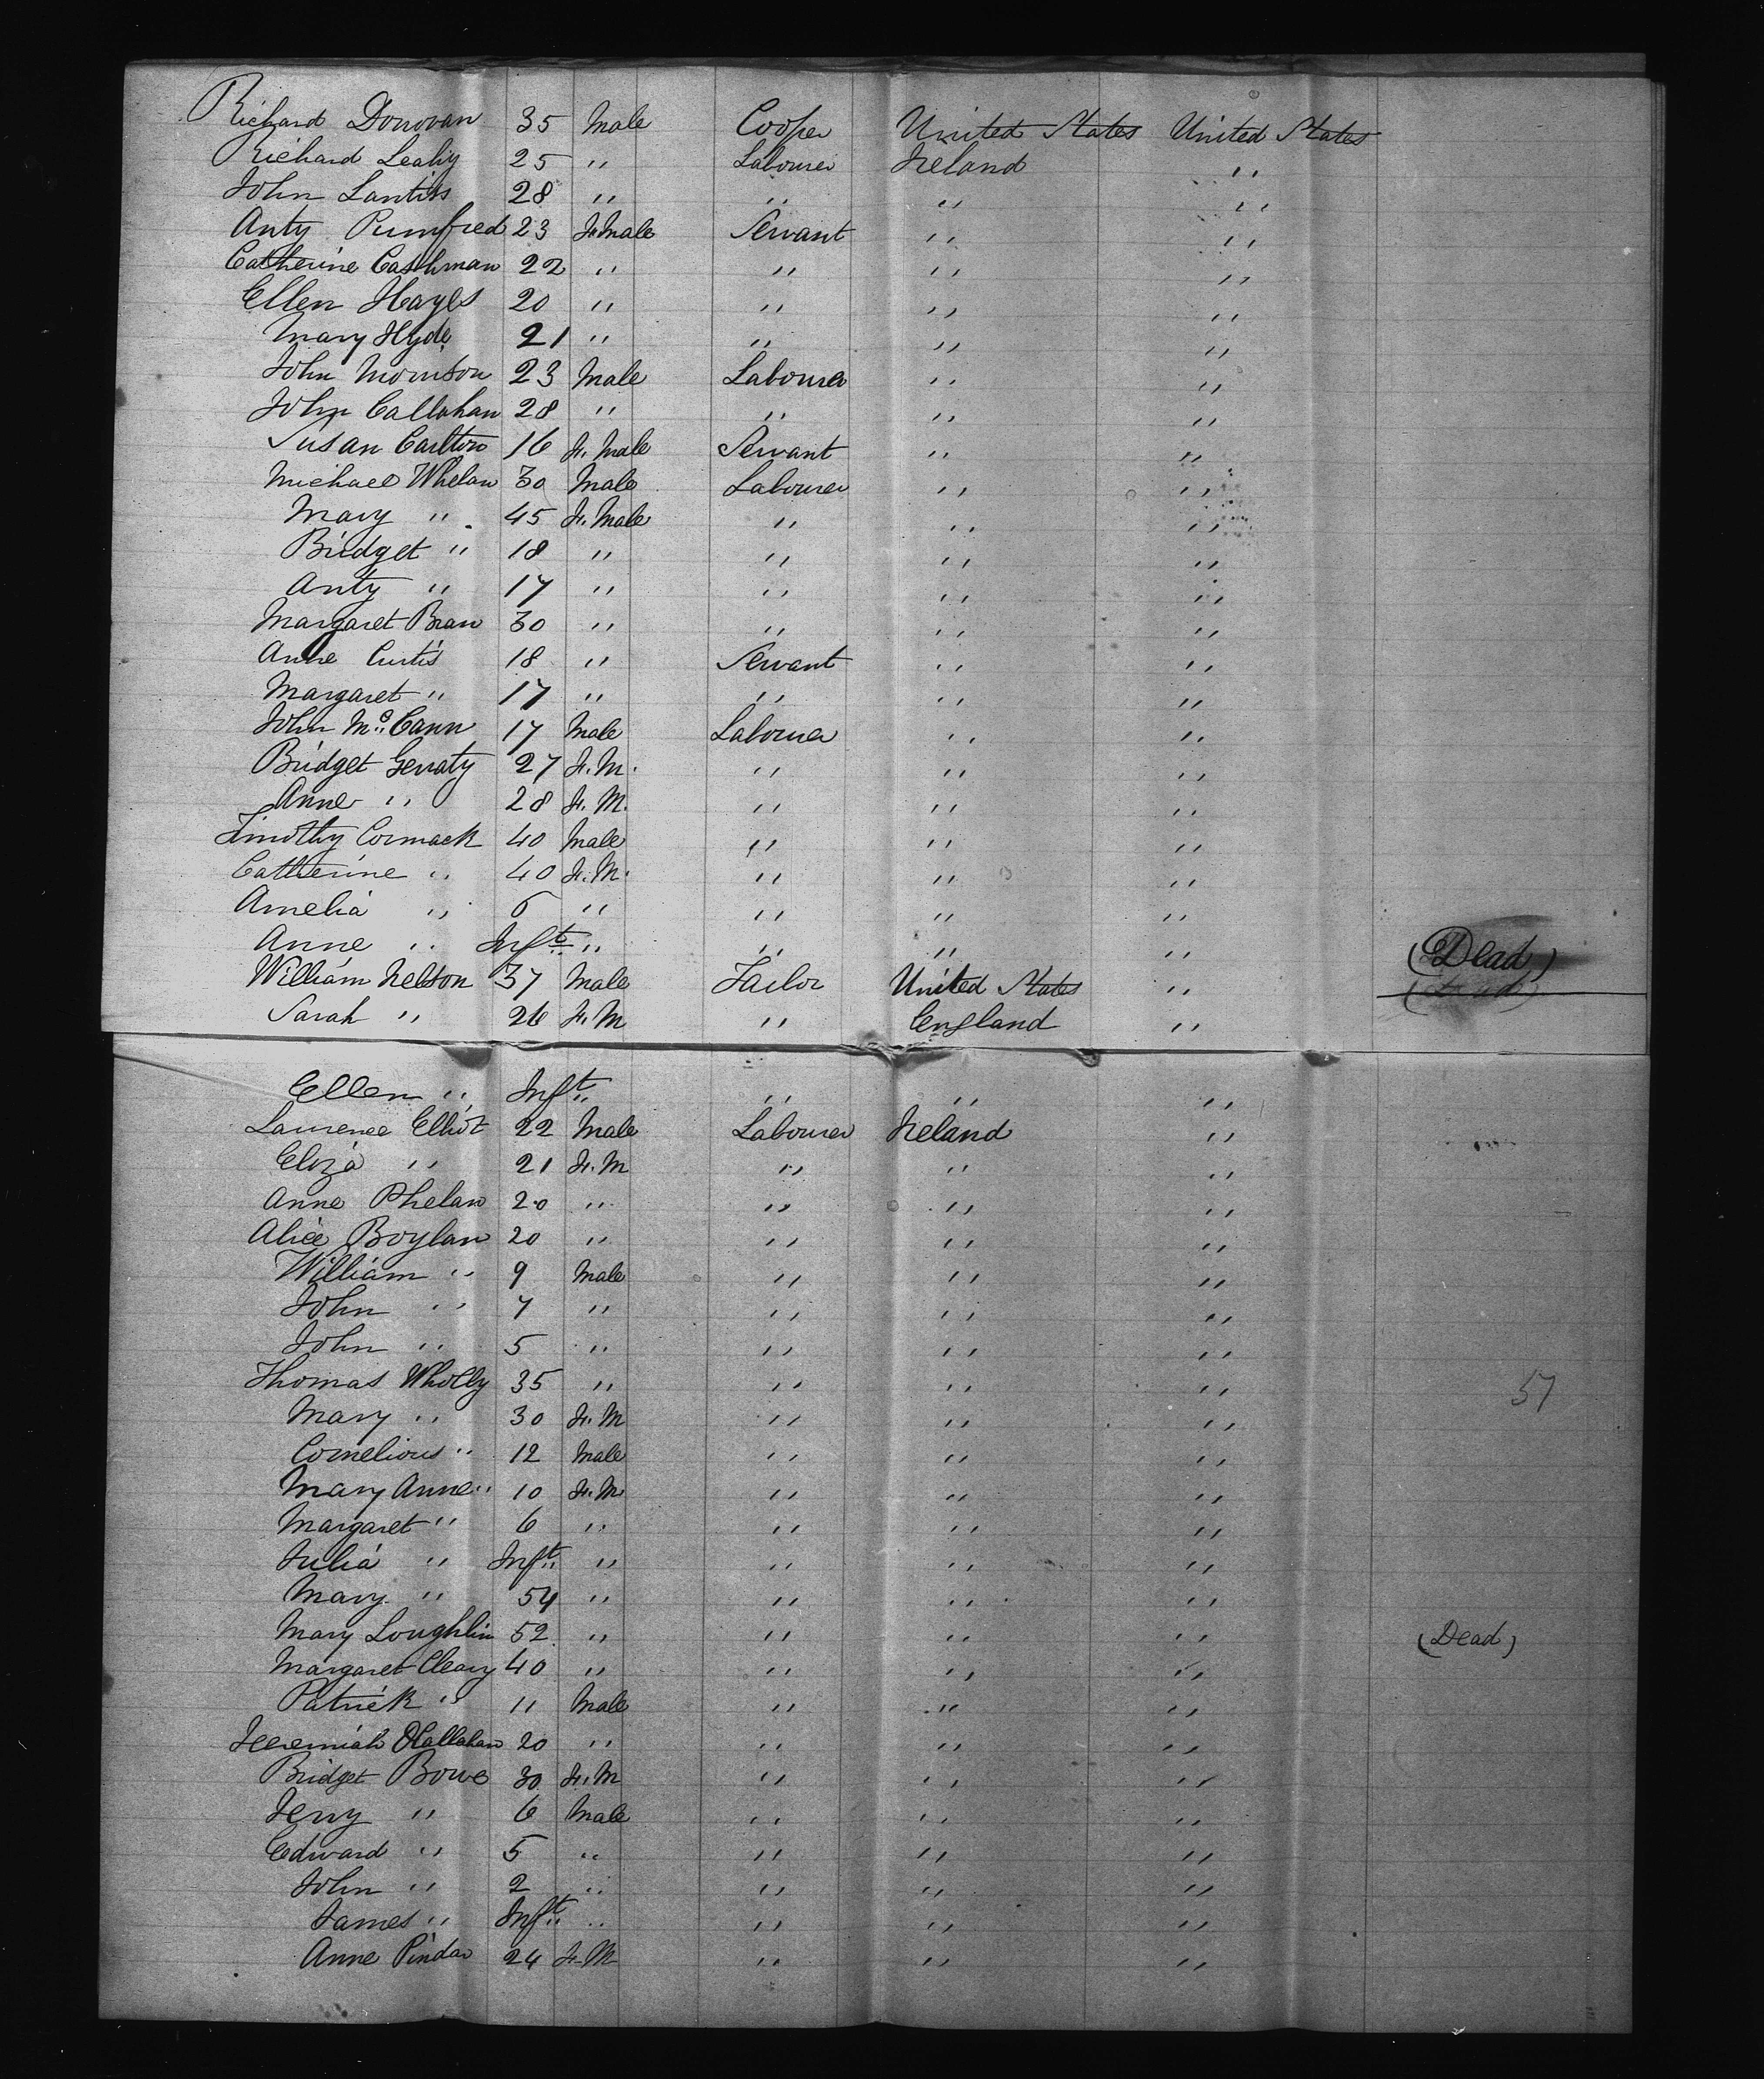 Richard Donovan 35 Male Cooper United States United States
Richard Leahy 25 " Labourer Ireland "
John Lantiss 28 " " " "
Anty Pumfred 23 Fe Male Servant " "
Catherine Cashman 22 " " " "
Ellen Hayes 20 " " " "
Mary Hyde 21 " " " "
John Morrison 23 Male Labourer " "
John Callahan 28 " " " "
Susan Carlton 16 Fe. Male Servant " "
Michael Whelan 30 Male Labourer " "
Mary " 45 Fe. Male " " "
Bridget " 18 " " " "
Anty " 17 " " " "
Margaret Bran 30 " " " "
Anne Curtis 18 " Servant " "
Margaret " 17 " " " "
John McCann 17 Male Labourer " "
Bridget Gerraty 27 Fe. M. " " "
Anne " 28 Fe. M. " " "
Timothy Cormack 40 Male " " "
Catherine " 40 Fe. M. " " "
Amelia " 6 " " " "
Anne " Inft " " " " (Dead)
William Nelson 37 Male Tailor United States "
Sarah " 26 Fe. M " England "
Ellen " Inft " " "
Laurence Elliot 22 Male Labourer Ireland "
Eliza " 21 Fe. M " " "
Anne Phelan 20 " " " "
Alice Boylan 20 " " " "
William " 9 Male " " "
John " 7 " " " "
John " 5 " " " "
Thomas Wholly 35 " " " " 57
Mary " 30 Fe. M " " "
Cornelious " 12 Male " " "
Mary Anne " 10 Fe. M. " " "
Margaret " 6 " " " "
Julia " Inft " " " "
Mary " 54 " " " "
Mary Loughlin 52 " " " " (Dead)
Margaret Cleary 40 " " " "
Patrick " 11 Male " " "
Jeremiah OCallahan 20 " " " "
Bridget Bowe 30 Fe. M " " "
Jerry " 6 Male " " "
Edward " 5 " " " "
John " 2 " " " "
James " Inft " " " "
Anne Pindar 24 Fe. M " " "